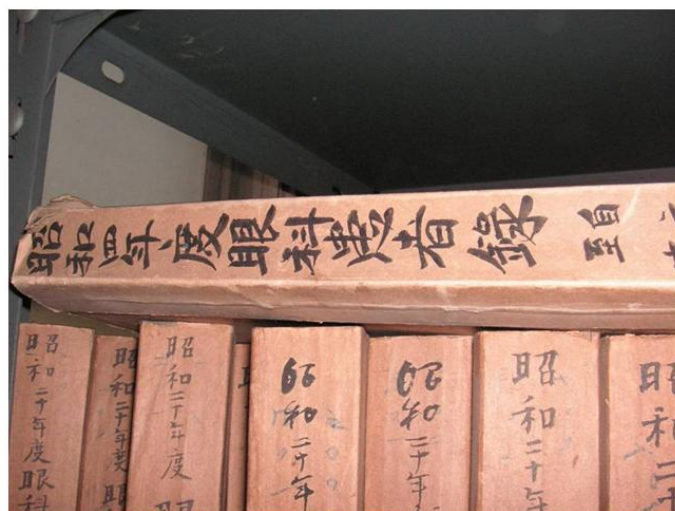 昭和四年度眼科患者録 自至
昭和二十年度眼科
昭和二十年度眼
昭和二十年度眼
昭和二十年
昭和二十年
昭和二十年
昭和二